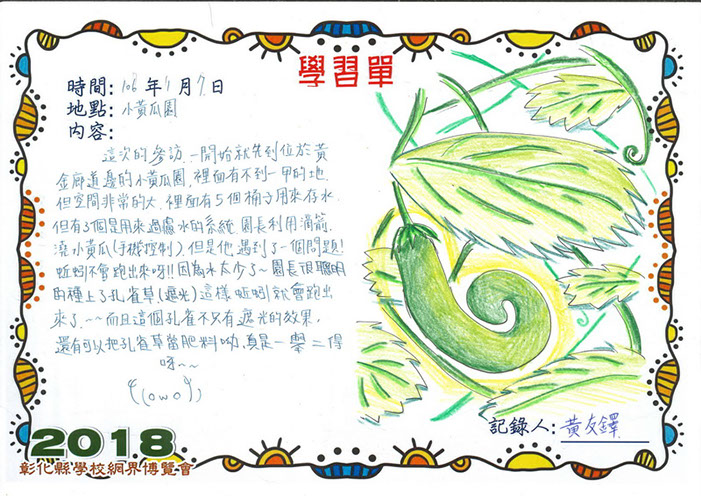 學習單
時間: 106 年 11 月 7 日
地點: 小黃瓜園
內容:
這次的參訪,一開始就先到位於黃
金廊道邊的小黃瓜園,裡面有不到一甲的地
但空間非常的大,裡面有5個桶子用來存水,
但有3個是用來過濾水的系統,園長利用滴箭,
澆小黃瓜(手機控制),但是他遇到了一個問題!
蚯蚓不會跑出來呀!!因為水太少了~園長很聰明
的種上了孔雀草(遮光)這樣蚯蚓就會跑出
來了.~~而且這個孔雀不只有遮光的效果,
還有可以把孔雀草當肥料呦,真是一舉二得
呀~~
(owo)
記錄人: 黃友鐸
2018
彰化縣學校網界博覽會